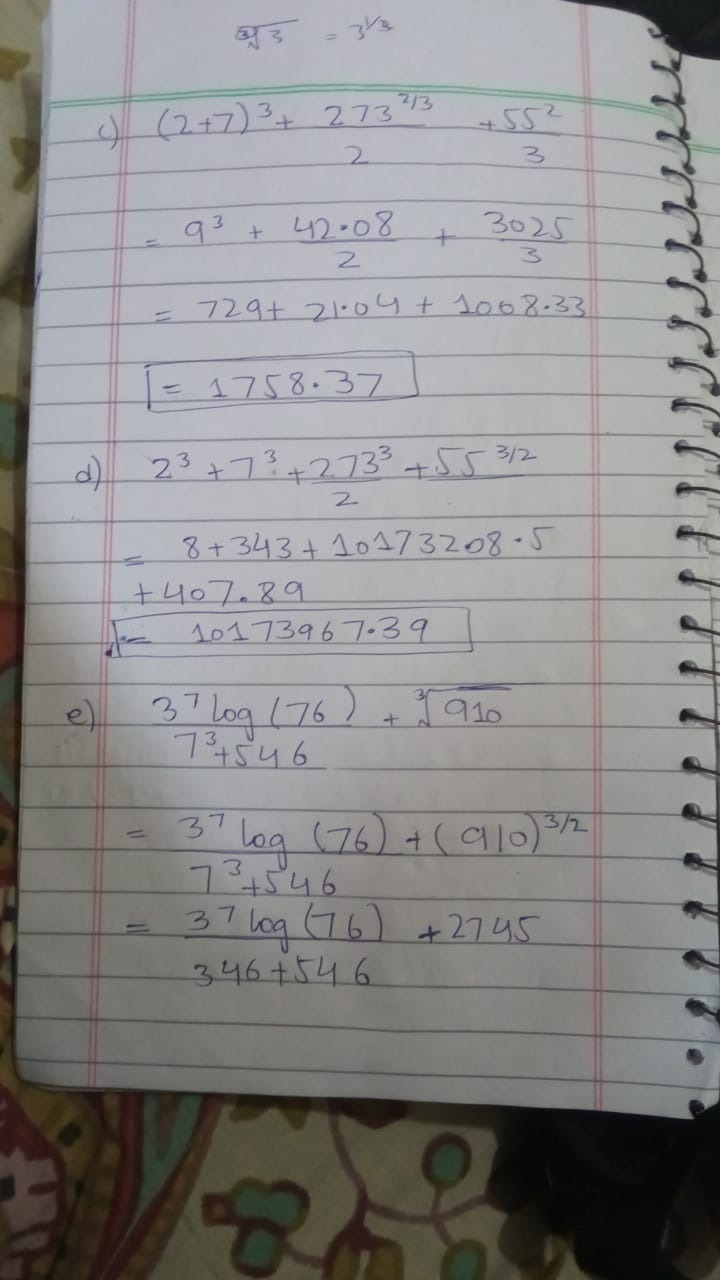 ∛3 = 3^1/3
c) (2+7)^3 + 273^2/3 / 2 + 55^2 / 3
= 9^3 + 42.08 / 2 + 3025 / 3
= 729 + 21.04 + 1008.33
= 1758.37
d) 2^3 + 7^3 + 273^3 / 2 + 55^3/2
= 8 + 343 + 10173208.5
+ 407.89
= 10173967.39
e) 3^7 log (76) / 7^3 + 546 + ∛910
= 3^7 log (76) / 7^3 + 546 + (910)^3/2
= 3^7 log (76) / 346 + 546 + 2745